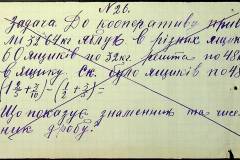 №26.
Задача До кооперативу приве
ли 3264кг яблук в різних ящик
60 ящиків по 32кг решта по 48к
в ящику. Ск. було ящиків по 48
Що показує знаменник та чис
ник дробу?